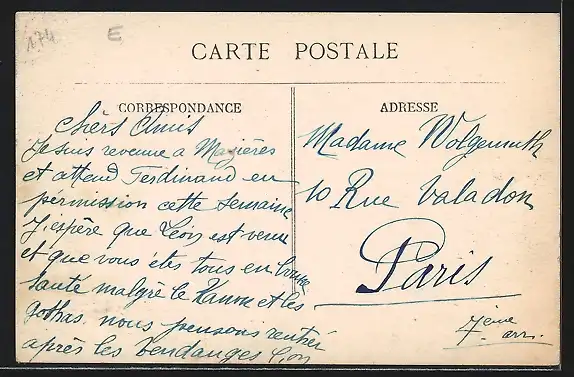 174 E
CARTE POSTALE
CORRESPONDANCE
Chèrs Amis
Je suis revenue a Mazières
et attend Ferdinand en
pérmission cette semaine
J'espère que Léon est venu
et que vous êtes tous en bonne
santé malgrè le Kanon et les
gothas. nous pensons rentrér
après les Vendanges Léon
ADRESSE
Madame Wolgemuth
10 Rue Valadon
Paris
7ème arr.